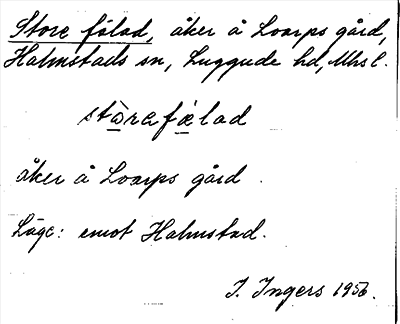 Store fälad, åker å Loarps gård,
Halmstads sn, Luggude hd, Mhs l.
stòrefæ̀lad
åker å Loarps gård.
Läge: emot Halmstad.
I. Ingers 1956.